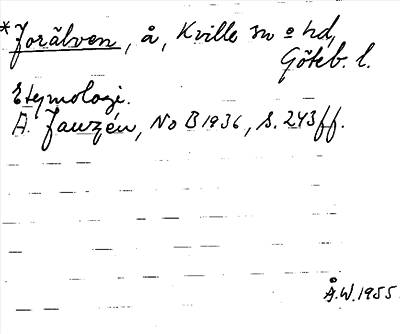 *Jorälven, å, Kville sn o hd,
Göteb. l.
Etymologi.
A. Janzén, NoB 1936, s. 243ff.
Å.W. 1955.